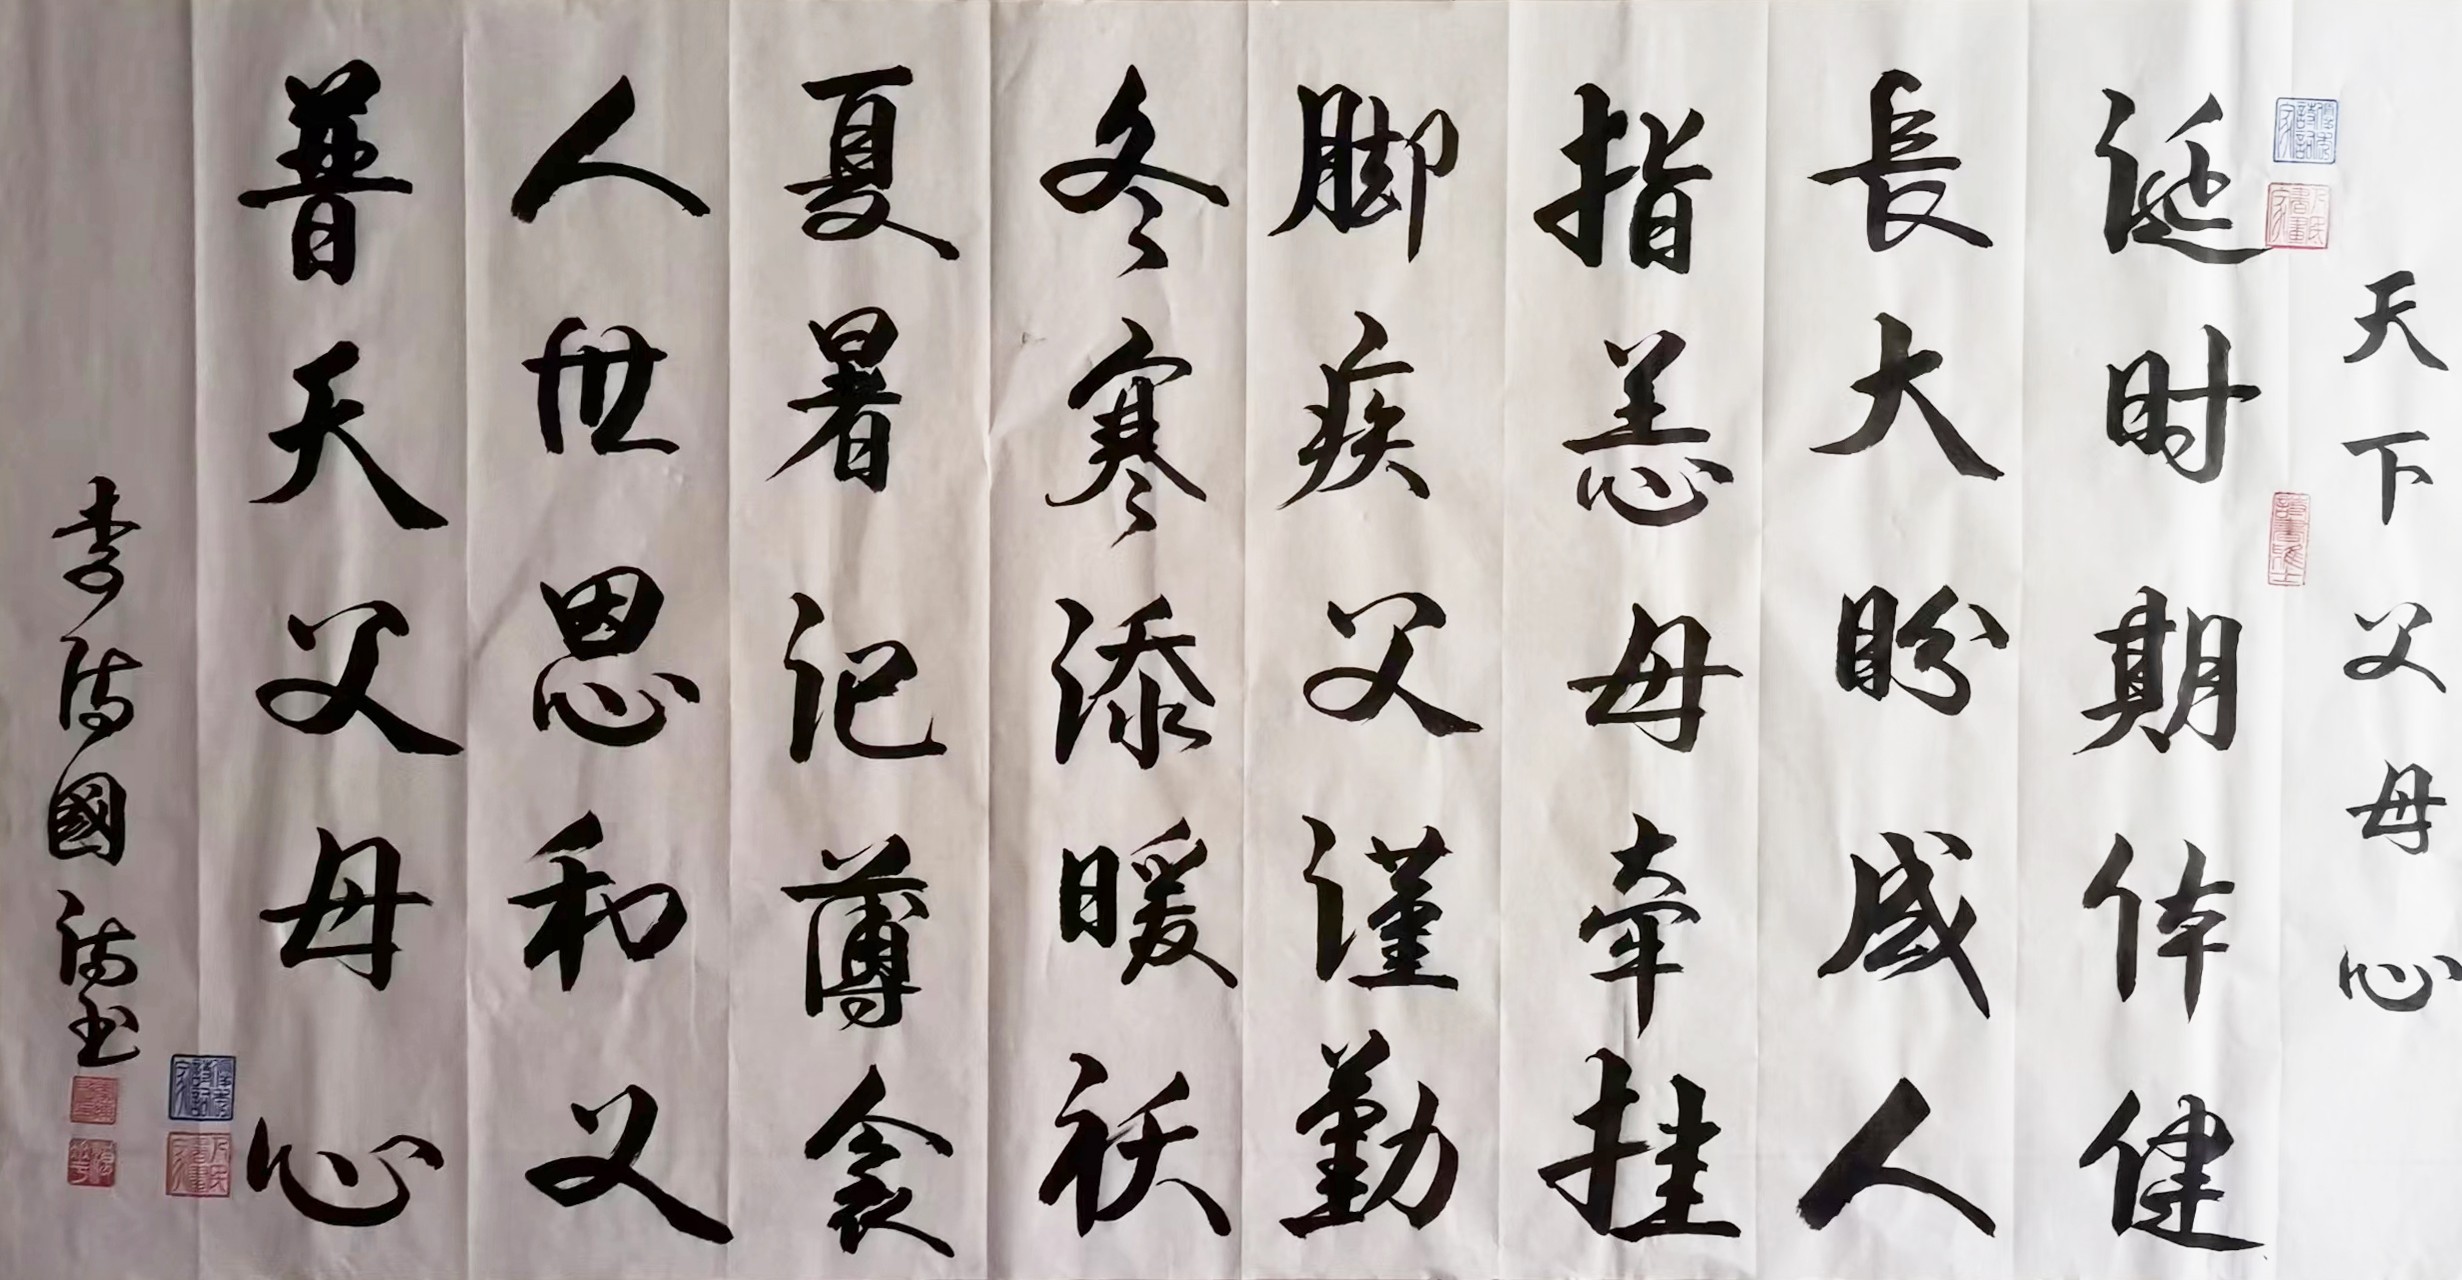 天下父母心
诞时期体健
長大盼成人
指恙母牵挂
脚疾父谨勤
冬寒添暖袄
夏暑记薄衾
人世恩和义
普天父母心
李國诗书